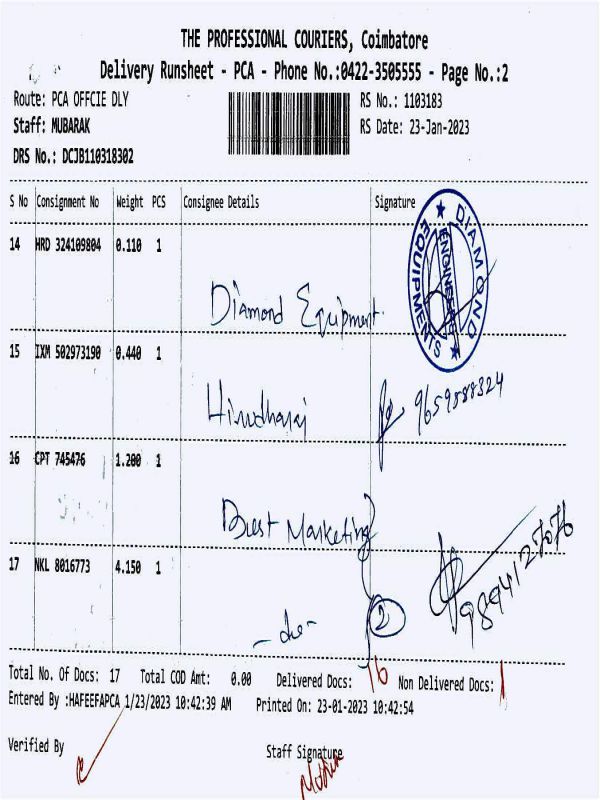 THE PROFESSIONAL COURIERS, Coimbatore
Delivery Runsheet - PCA - Phone No.:0422-3505555 - Page No.:2
Route: PCA OFFCIE DLY
RS No.: 1103183
Staff: MUBARAK
RS Date: 23-Jan-2023
DRS No.: DCJB110318302
S No Consignment No Weight PCS Consignee Details Signature
14 HRD 324109804 0.110 1
Diamond Equipment
DIAMOND
ENGINEERS
EQUIPMENTS
15 IXM 502973190 0.440 1
9659588324
16 CPT 745476 1.200 1
Best Marketing
17 NKL 8016773 4.150 1
9894127076
- do -
2
Total No. Of Docs: 17 Total COD Amt: 0.00 Delivered Docs: 16 Non Delivered Docs: 1
Entered By :HAFEEFAPCA 1/23/2023 10:42:39 AM Printed On: 23-01-2023 10:42:54
Verified By Staff Signature